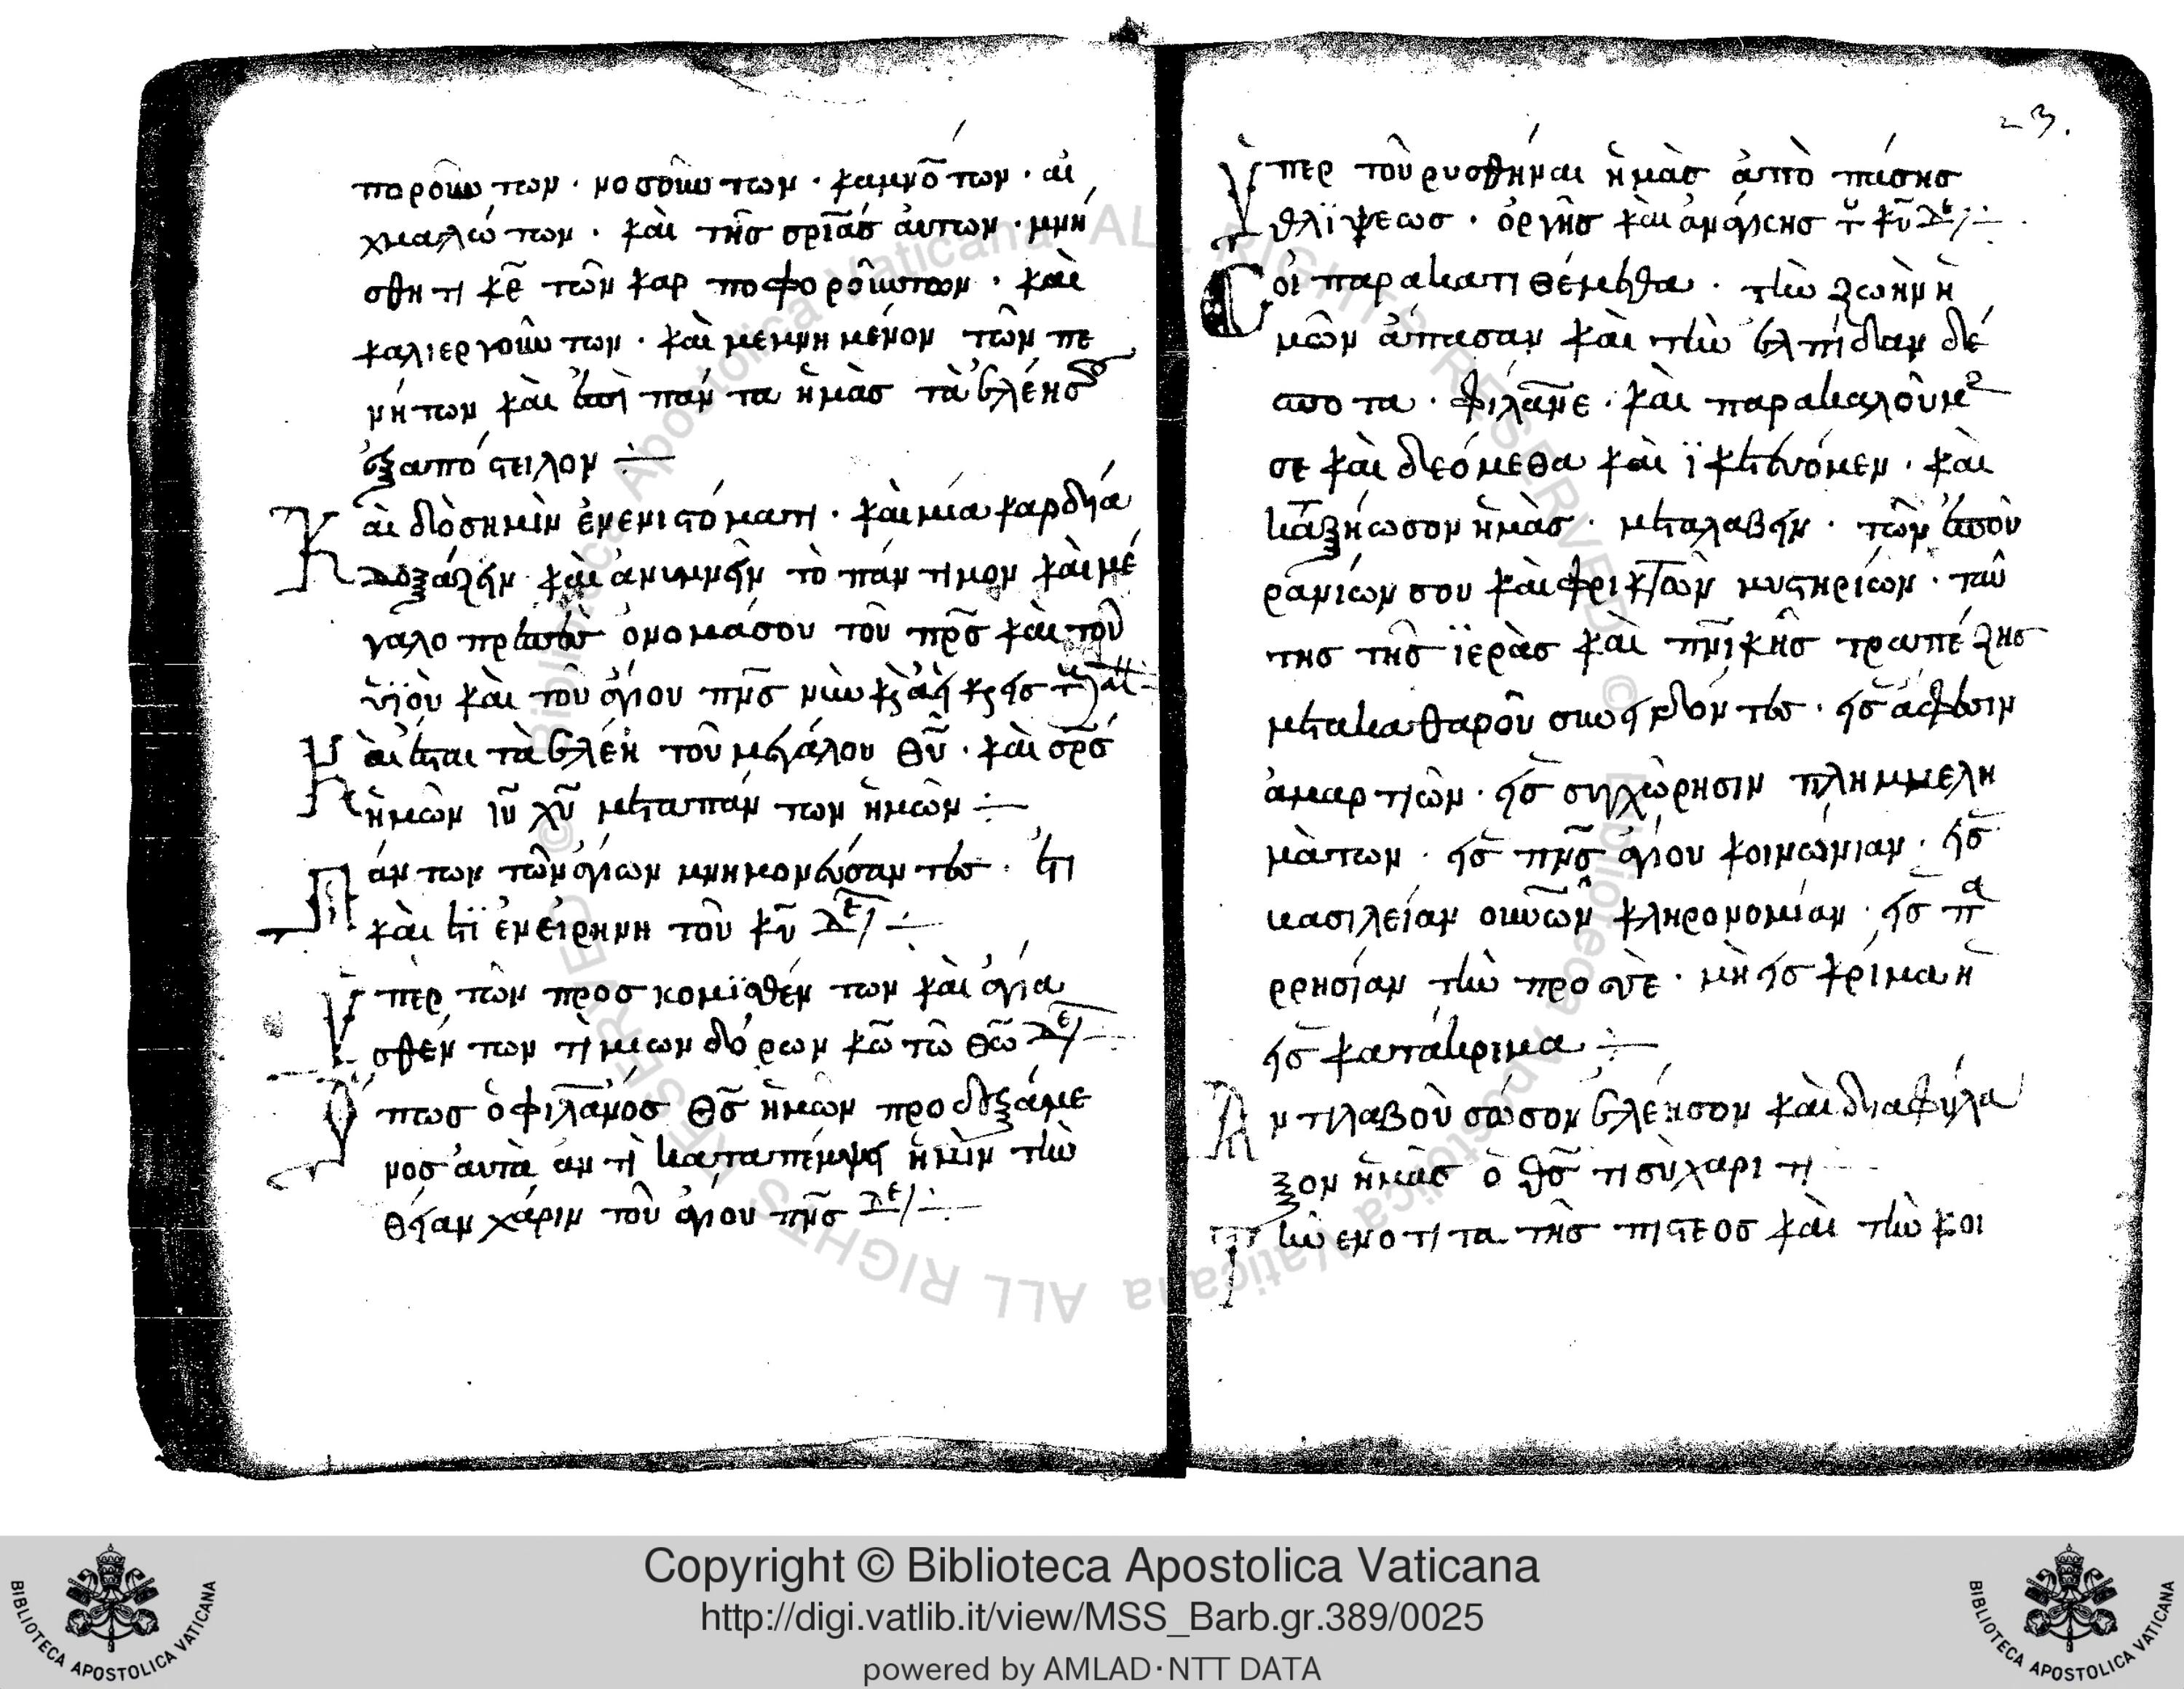 πορούντων · νοσούντων · καμνὄντων · αἰ
χμαλώτων · καὶ τῆς σ̅ρ̅ι̅ας αὐτων · μνή
σθητι κ̅ε̅ τῶν καρποφορούντων · καὶ
καλιεργούντων · καὶ μεμνημένον τῶν πε
νήτων καὶ ἐπὶ πάντα ἡμὰς τὰ ἐλέησου
ἐξαπόστειλον ÷
Καὶ δὸς ημὶν ἐνενὶ στόματι · καὶ μία καρδηά
δοξάζειν καὶ ἀνυμνεῖν τὸ πάντιμον καὶ με
γαλοπρεπὲς ὀνομάσου τοῦ π̅ρ̅ς καὶ τοῦ
ὑϊοὺ καὶ τοῦ ἁγιου π̅ν̅ς νῦν κ̀ ἀεὶ κ̀ εις τ
Καὶ ἐσται τὰ ἐλέη τοῦ μεγάλου θ̅υ̅ · καὶ σ̅ρ̅ς
ἡμῶν ι̅υ̅ χ̅υ̅ μετὰ πάντων ἡμῶν ÷
Πάντων τῶν ἁγίων μνημονεύσαντες · ἐτι
καὶ ἐτϊ ἐν εἰρηνη τοῦ κ̅υ̅ δε ÷
Ὑπὲρ τῶν προσκομϊσθέντων καὶ ἁγια
σθέντων τιμίων δώρων κ̅ῶ τῶ θ̅ω̅ δε ÷
Ὅπως ὁ φιλ̅α̅ν̅ος θ̅ς̅ ἡμῶν προσδεξάμε
νος ἀυτὰ ἀντὶ καταπέμψει ἡμὶν τὴν
θείαν χάριν τοῦ ἁγιου π̅ν̅ς δε ÷
23.
Ὑπερ τοῦ ρυσθήναι ἡμὰς ἀπὸ πάσης
θλϊψεως · ὀργῆς καὶ ἀνάγκης τ κ̅υ̅ δε ÷
Σοὶ παρακατιθέμεθα · τὴν ζωὴν ἡ
μῶν ἁπασαν καὶ τὴν ἐλπίδαν δέ
σποτα · φιλ̅α̅ν̅ε · καὶ παρακαλοῦμε
σε καὶ δεόμεθα καὶ ϊκετεύομεν · καὶ
κατ̅αξήωσον ἡμὰς · μεταλαβεῖν · τῶν ἐπου
ρανίων σου καὶ φρικτῶν μυστηρίων · ταύ
της τῆς ϊερὰς καὶ π̅ν̅ικῆς τραπέζης
μετα καθαροῦ συνειδόντες · εις ἀφεσιν
ἁμαρτιῶν · εις συγχώρησιν πλημμελη
μὰτων · εις π̅ν̅ς ἁγιου κοινωνίαν · εις
βασιλείαν ου̅ν̅ων κληρονομίαν · εις πα
ρρησίαν τὴν προς σὲ · μὴ εις κρίμα ἢ
εις κατάκριμα ÷
Ἀντιλαβοὺ σῶσον ἐλέησον καὶ διαφύλα
ξον ἡμὰς ὁ θ̅ς̅ τι σὺ χαριτι
Τὴν ενοτιτα τῆς πιστεος καὶ τὴν κοι
Copyright © Biblioteca Apostolica Vaticana
http://digi.vatlib.it/view/MSS_Barb.gr.389/0025
powered by AMLAD·NTT DATA
BIBLIOTECA APOSTOLICA VATICANA
BIBLIOTECA APOSTOLICA VATICANA
© Biblioteca Apostolica Vaticana ALL RIGHTS RESERVED © Biblioteca Apostolica Vaticana ALL RIGHTS RESERVED